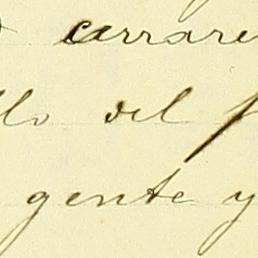 cerrare
llo del
gente y